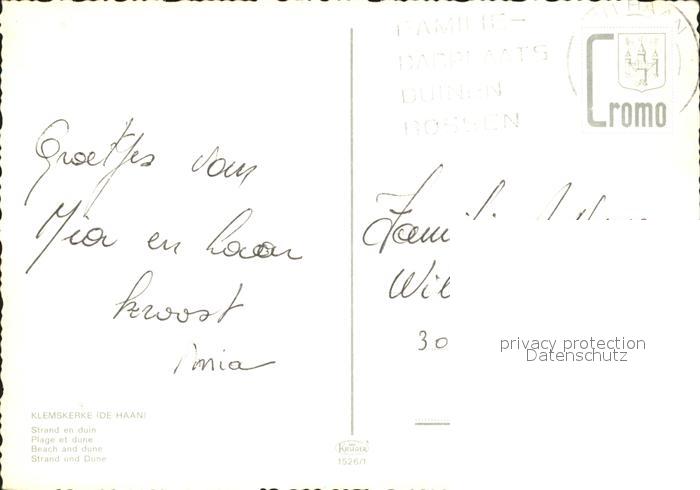 Groetjes van
Mia en haar
kroost
KLEMSKERKE (DE HAAN)
Strand en duin
Plage et dune
Beach and dune
Strand und Düne
KRÜGER
1526/1
FAMILIE-
BADPLAATS
DUINEN
BOSSEN
Cromo
Wil
30
privacy protection
Datenschutz